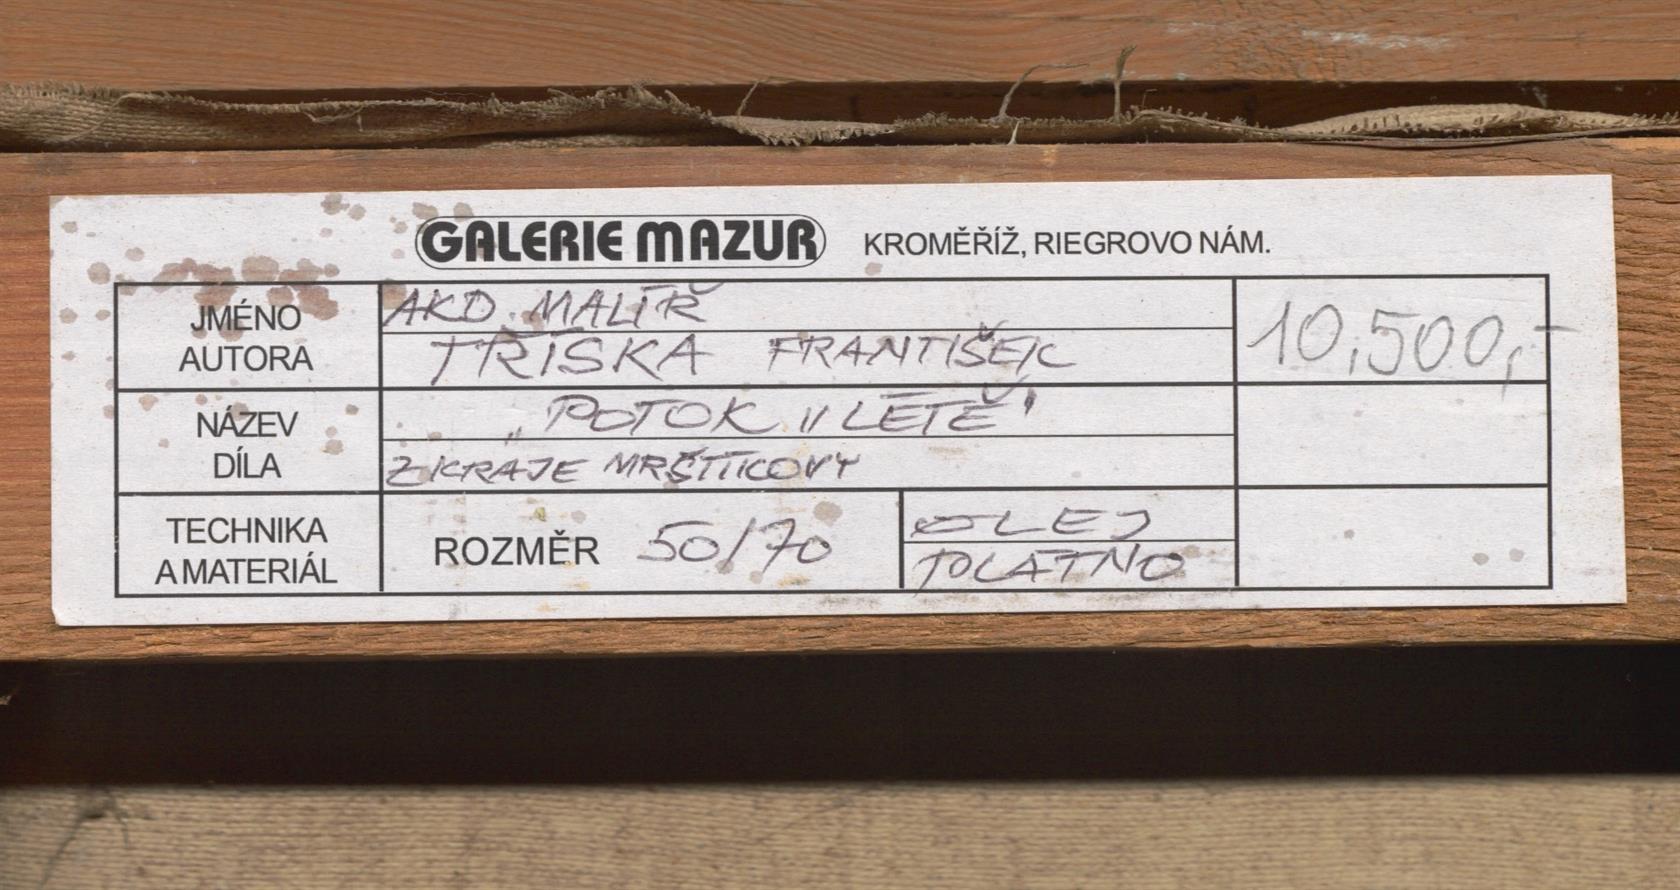 GALERIE MAZUR KROMĚŘÍŽ, RIEGROVO NÁM.
JMÉNO
AUTORA
AKD. MALÍŘ
TŘÍSKA FRANTIŠEK
10,500,-
NÁZEV
DÍLA
„POTOK V LÉTĚ"
Z KRAJE MRŠTÍKOVY
TECHNIKA
A MATERIÁL
ROZMĚR 50/70
OLEJ
PLÁTNO